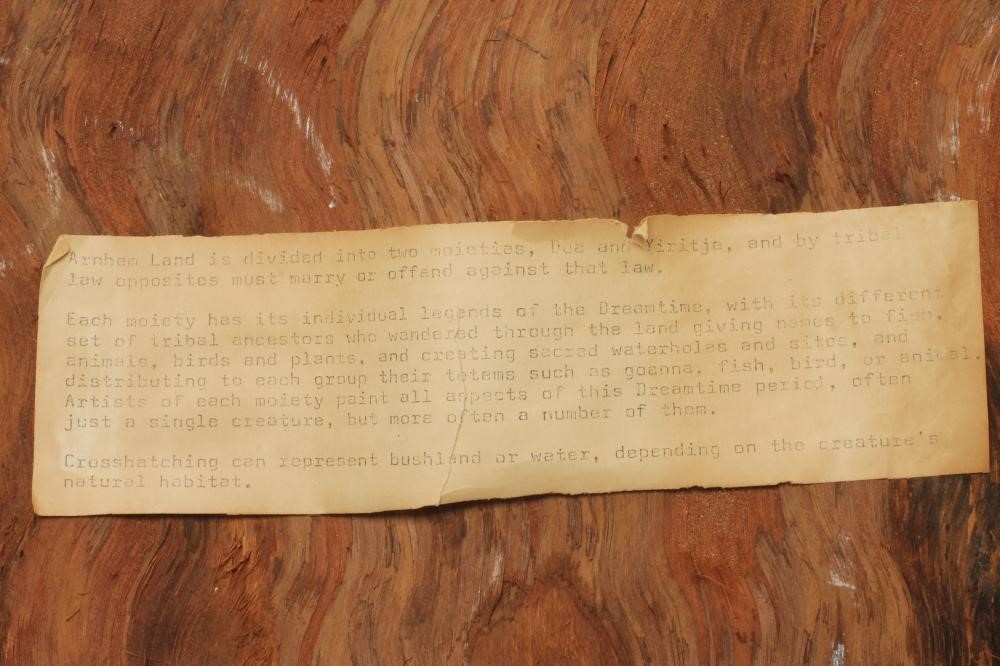 Arnhem Land is divided into two moieties, Dua and Yiritja, and by tribal
law opposites must marry or offend against that law.
Each moiety has its individual legends of the Dreamtime, with its different
set of tribal ancestors who wandered through the land giving names to fish,
animals, birds and plants, and creating sacred waterholes and sites, and
distributing to each group their totems such as goanna, fish, bird, or animal.
Artists of each moiety paint all aspects of this Dreamtime period, often
just a single creature, but more often a number of them.
Crosshatching can represent bushland or water, depending on the creature's
natural habitat.